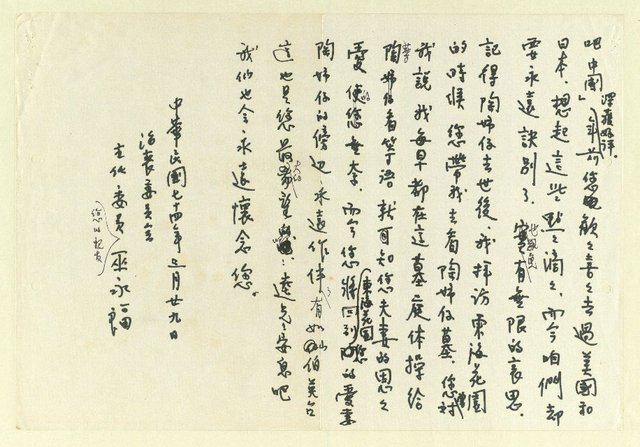 吧中國」深獲好評。年前您也歡々喜々去過美國和
日本、想起這些點々滴々、而今咱們却
要永遠訣別了、寔有無限的哀思。
記得陶姊仔去世後、我拜訪東海花園
的時候 您帶我去看陶姊仔墓、您對
我說 我每早都在這墓庭体操給
陶姊仔看等語 就可知您夫妻的恩々
愛 使您 而今您將回到東海花園您的愛妻
陶姊仔的傍边 永遠作伴 有如山伯英台
這也是您最希望 逵兄之安息吧
我們也会永遠懷念您。
中華民國七十四年三月廿九日
治喪委員会
主任委員 巫永福